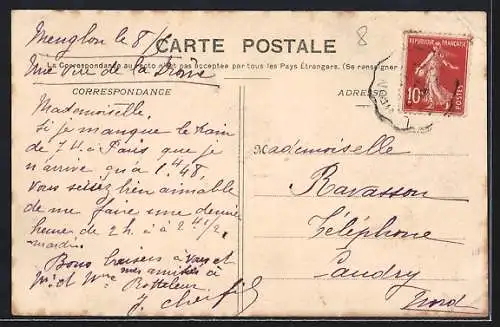 Menglon le 8/
8
CARTE POSTALE
La Correspondance au recto n'est pas acceptée par tous les Pays Étrangers. (Se renseigner
Une vue de la Drôme
CORRESPONDANCE
ADRESSE
REPUBLIQUE FRANÇAISE
10
POSTES
Mademoiselle.
Si je manque le train
de 7 h. à Paris que je
n'arrive qu'à 1.48,
vous seriez bien aimable
de me faire une demie
heure de 2 h. à 2 h 1/2.
mardi.
Bons baisers à vous et
mes amitiés à
Mr et Mme Rottaleur
Mademoiselle
Ravasson
Téléphone
Caudry
Nord